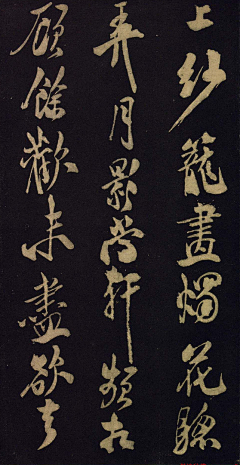 上紗籠畫燭花驄
弄月影當軒頻相
顧餘歡未盡欲去